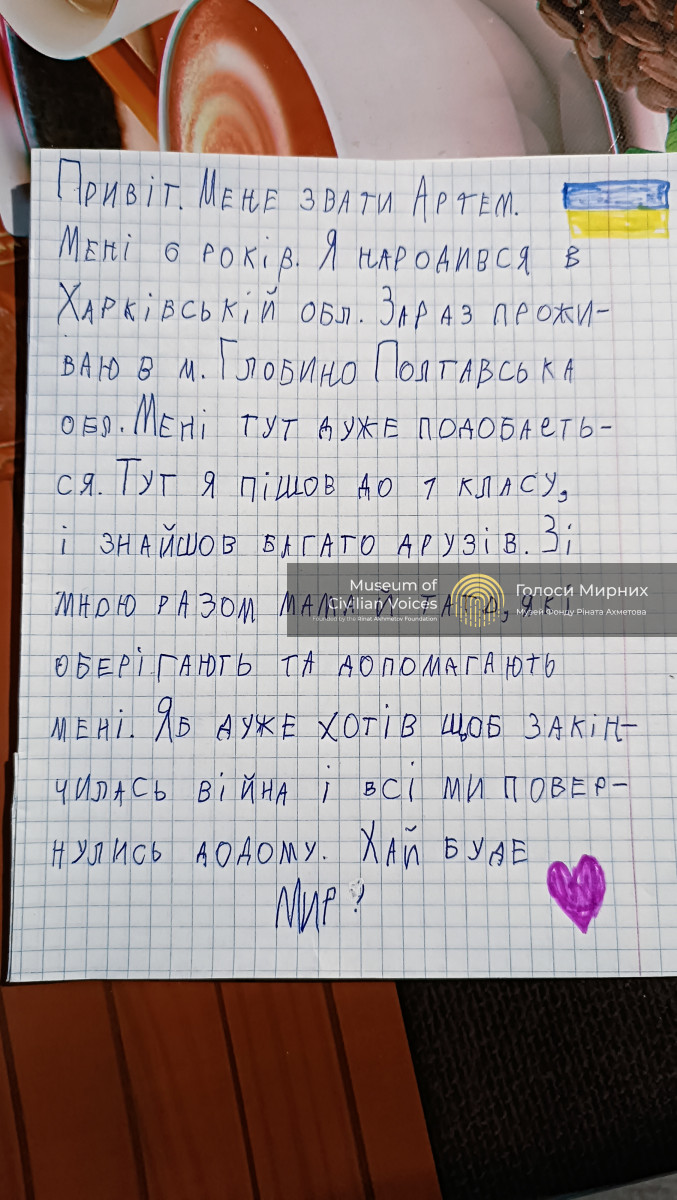 Привіт. Мене звати Артем.
Мені 6 років. Я народився в
Харківській обл. Зараз прожи-
ваю в м. Глобино Полтавська
обл. Мені тут дуже подобаєть-
ся. Тут я пішов до 1 класу,
і знайшов багато друзів. Зі
мною разом мама й тато, які
оберігають та допомагають
мені. Яб дуже хотів щоб закін-
чилась війна і всі ми повер-
нулись додому. Хай буде
Мир!
Museum of
Civilian Voices
Founded by the Rinat Akhmetov Foundation
Голоси Мирних
Музей Фонду Ріната Ахметова